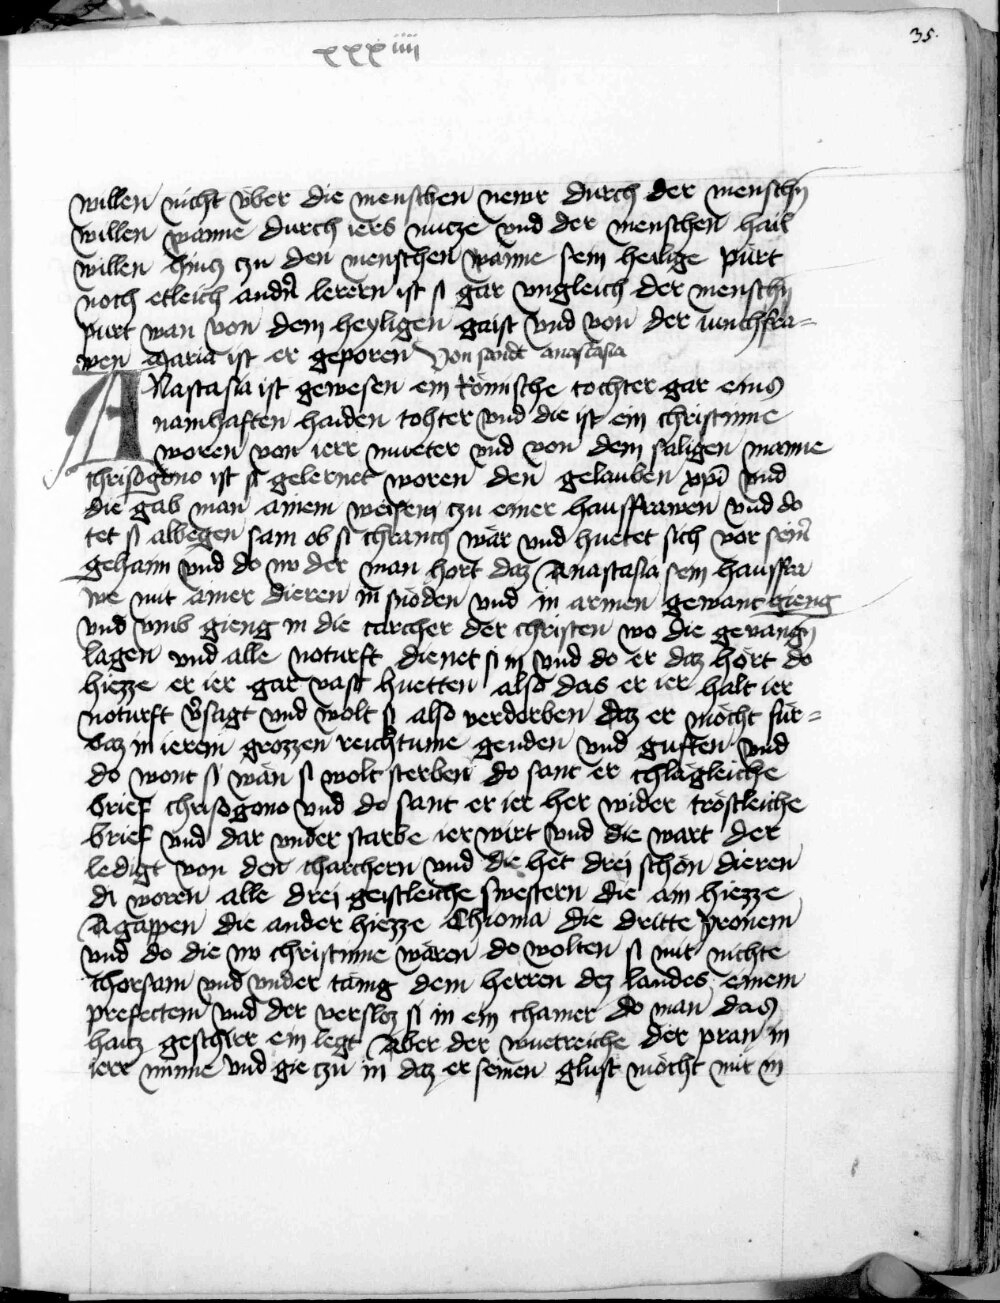 xxxiiii
35.
willen nicht vber die menschen newr durch der menschn
willen wanne durch iers nucze vnd der menschen hail
willen hincz czu den menschen wanne sein heilige pürt
noch etleich andn lerern ist si gar vngleich der menschn
pürt wan von dem heyligen gaist vnd von der iunchfra=
wen maria ist er geporen Von sandt anastasia
ANastasia ist gewesen ein Römische tochter gar eins
namhaften haiden tohter vnd die ist ein christinne
woren von ierr mueter vnd von dem saligen manne
chrisogono ist si gelernet woren den gelauben xpi vnd
die gab man ainem weisem czu einer hausfrawen vnd do
tet si albegen sam ob si chranch wär vnd huetet sich vor seinr
gehaim vnd do nv der man hort daz Anastasia sein hausfra
we mit ainer dieren in snöden vnd in armen gewant gieng
vnd vmb gieng in die carcher der christen wo die gevangn
lagen vnd alle noturft dienet si in vnd do er daz hört do
hiezze er ier gar vast huetten also das er ier halt ier
noturft vsagt vnd wolt si also verderben daz er möcht für=
baz in ierem grozzen reichtume geuden vnd guften vnd
do wont si wän si wolt sterben do sant er chlägleiche
brief chrisogono vnd do sant er ier her wider tröstleiche
brief vnd dar vnder starbe ier wirt vnd die wart der
ledigt von den charchern vnd die het drei schön dieren
di woren alle drei geistleiche swestern die ain hiezze
Agappen die ander hiezze Chionia die dritte yronem
vnd do die nv christinne wären do wolten si mit nichte
chorsam vnd vnder tänig dem herren dez landes einem
prefectem vnd der versloz si in ein chamer do man das
hatz geschirr ein legt Aber der wuetreiche der pran in
ierr minne vnd gie czu in daz er seinen glust möcht mit in